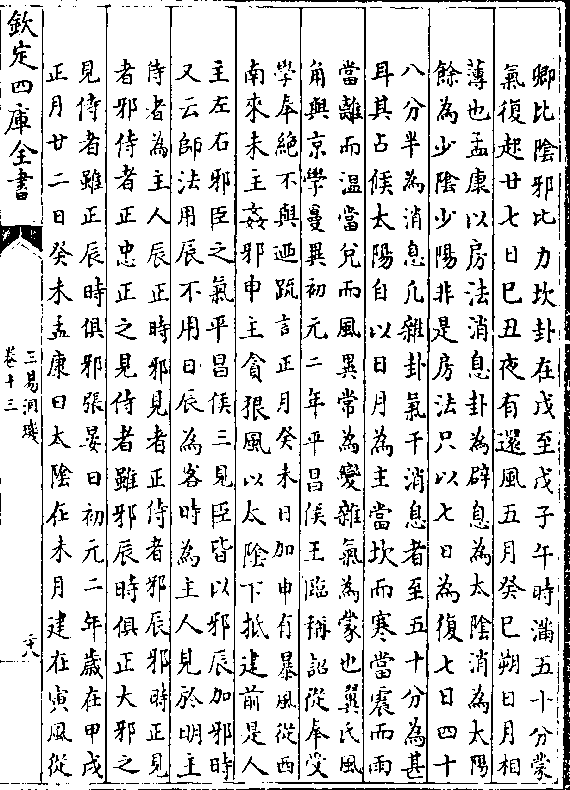 卿比陰邪比力坎卦在戊至戊子午時滿五十分蒙
氣復起廿七日巳丑夜有還風五月癸巳朔日月相
薄也孟康以房法消息卦為辟息為太陰消為太陽
餘為少陰少陽非是房法只以七日為復七日四十
八分半為消息凡雜卦氣干消息者至五十分為甚
耳其占候太陽自以日月為主當坎而寒當震而雨
當離而温當兌而風異常為變雜氣為蒙也翼氏風
角與京學曼異初元二年平昌侯王臨稱詔從奉受
學奉絕不與迺䟽言正月癸未日加申有暴風從西
南來未主姦邪申主貪狠風以太陰下抵建前是人
主左右邪臣之氣平昌侯三見臣皆以邪辰加邪時
又云師法用辰不用日辰為客時為主人見於明主
侍者為主人辰正時邪見者正侍者邪辰邪時正見
者邪侍者正忠正之見侍者雖邪辰時俱正大邪之
見侍者雖正辰時俱邪張晏曰初元二年歲在甲戌
正月廿二日癸未孟康曰太陰在未月建在寅風從
欽定四庫全書
三易洞璣
卷十三
二十八